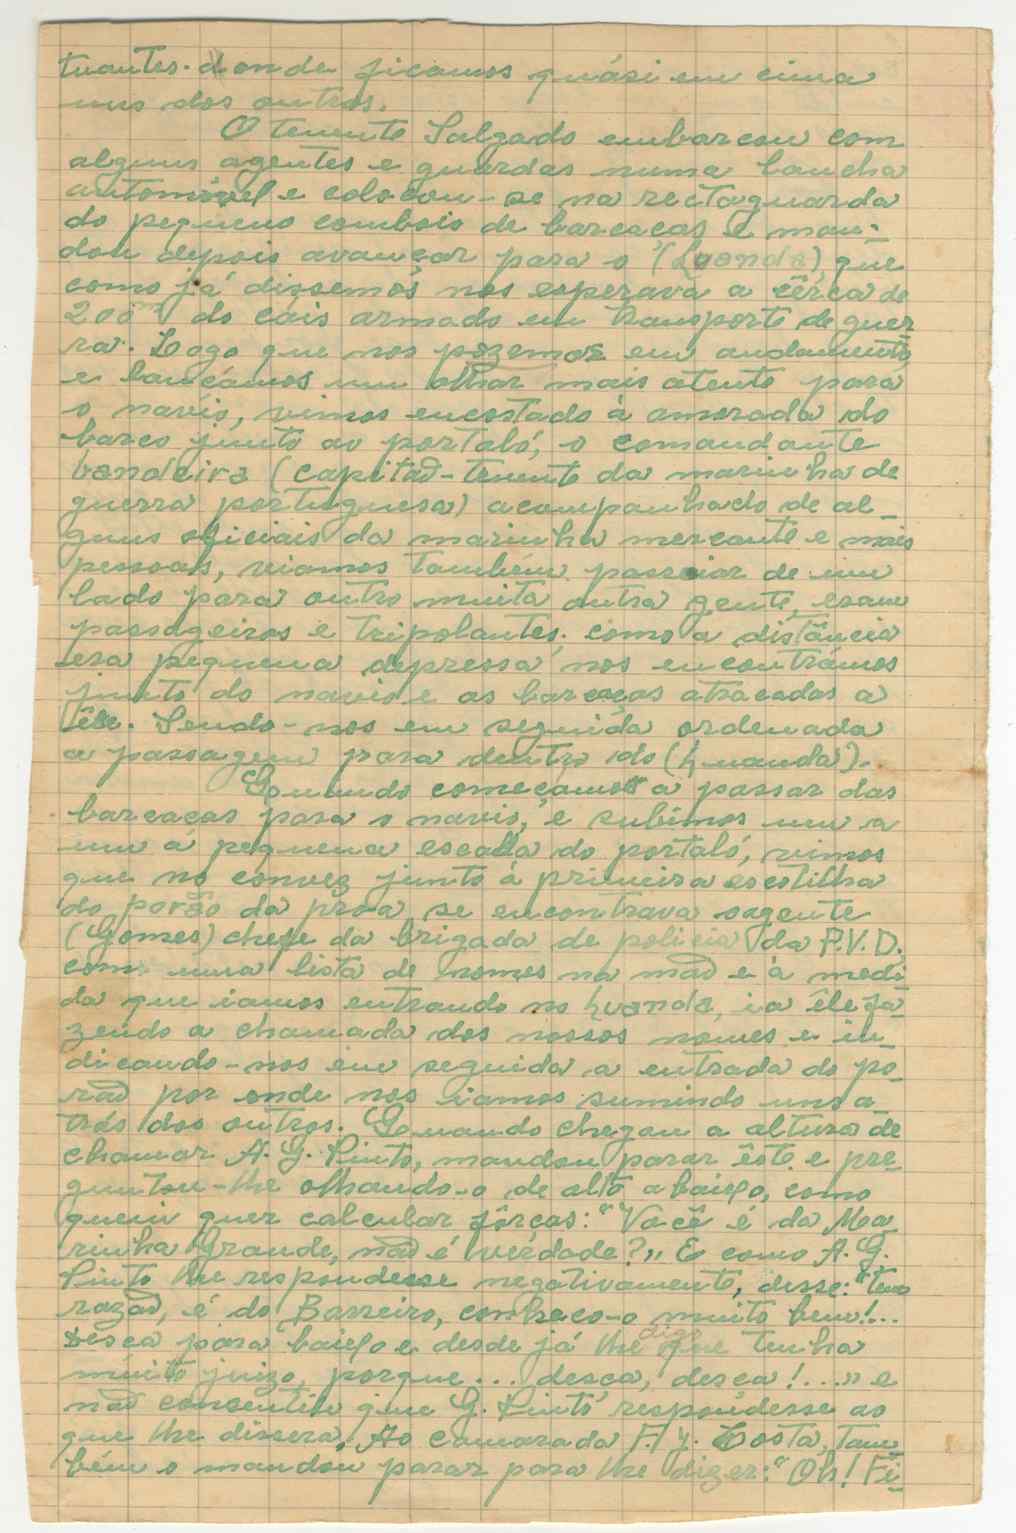 tuantes. donde ficamos quási em cima
uns dos outros.
O tenente Salgado embarcou com
alguns agentes e guardas numa lancha
automóvel e colocou-se na rectaguarda
do pequeno comboio de barcaças e man-
dou depois avançar para o (Luanda), que
como já dissemos nos esperava a cêrca de
200m do cais armado em transporte de guer
ra. Logo que nos pozemos em andamento,
e lançámos um olhar mais atento para
o navio, vimos encostado à amorada do
barco junto ao portaló, o comandante
bandeira (capitão-tenente da marinha de
guerra portuguesa) acompanhado de al-
guns oficiais da marinha mercante e mais
pessoas, viamos também passeiar de um
lado para outro muita outra gente, eram
passageiros e tripolantes. como a distância
era pequena depressa nos encontrámos
junto do navio e as barcaças atracadas a
êle. Sendo-nos em seguida ordenada
a passagem para dentro do (Luanda).
Quando começamos a passar das
barcaças para o navio, e subimos um a
um a pequena escada do portaló, vimos
que no convez junto á primeira escotilha
do porão da prôa se encontrava o agente
(Gomes) chefe da brigada de policia da P.V.D.
com uma lista de nomes na mão e à medi
da que iamos entrando no Luanda, ia êle fa-
zendo a chamada dos nossos nomes e in-
dicando-nos em seguida a entrada do po-
rão por onde nos iamos sumindo uns a
trás dos outros. Quando chegou a altura de
chamar A. G. Pinto, mandou parar êste e pre
guntou-lhe olhando-o de alto abaixo, como
quem quer calcular fôrças: "Você é da Ma
rinha Grande, não é verdade?" E como A. G.
Pinto lhe respondesse negativamente, disse: "tem
razão, é do Barreiro, conheço-o muito bem!...
Desça para baixo e desde já lhe digo que tenha
muito juizo, porque... desça, desça!..." e
não consentiu que G. Pinto respondesse ao
que lhe dissera. Ao camarada F. J. Costa, tam-
bém o mandou parar para lhe dizer: "Oh! Fi-